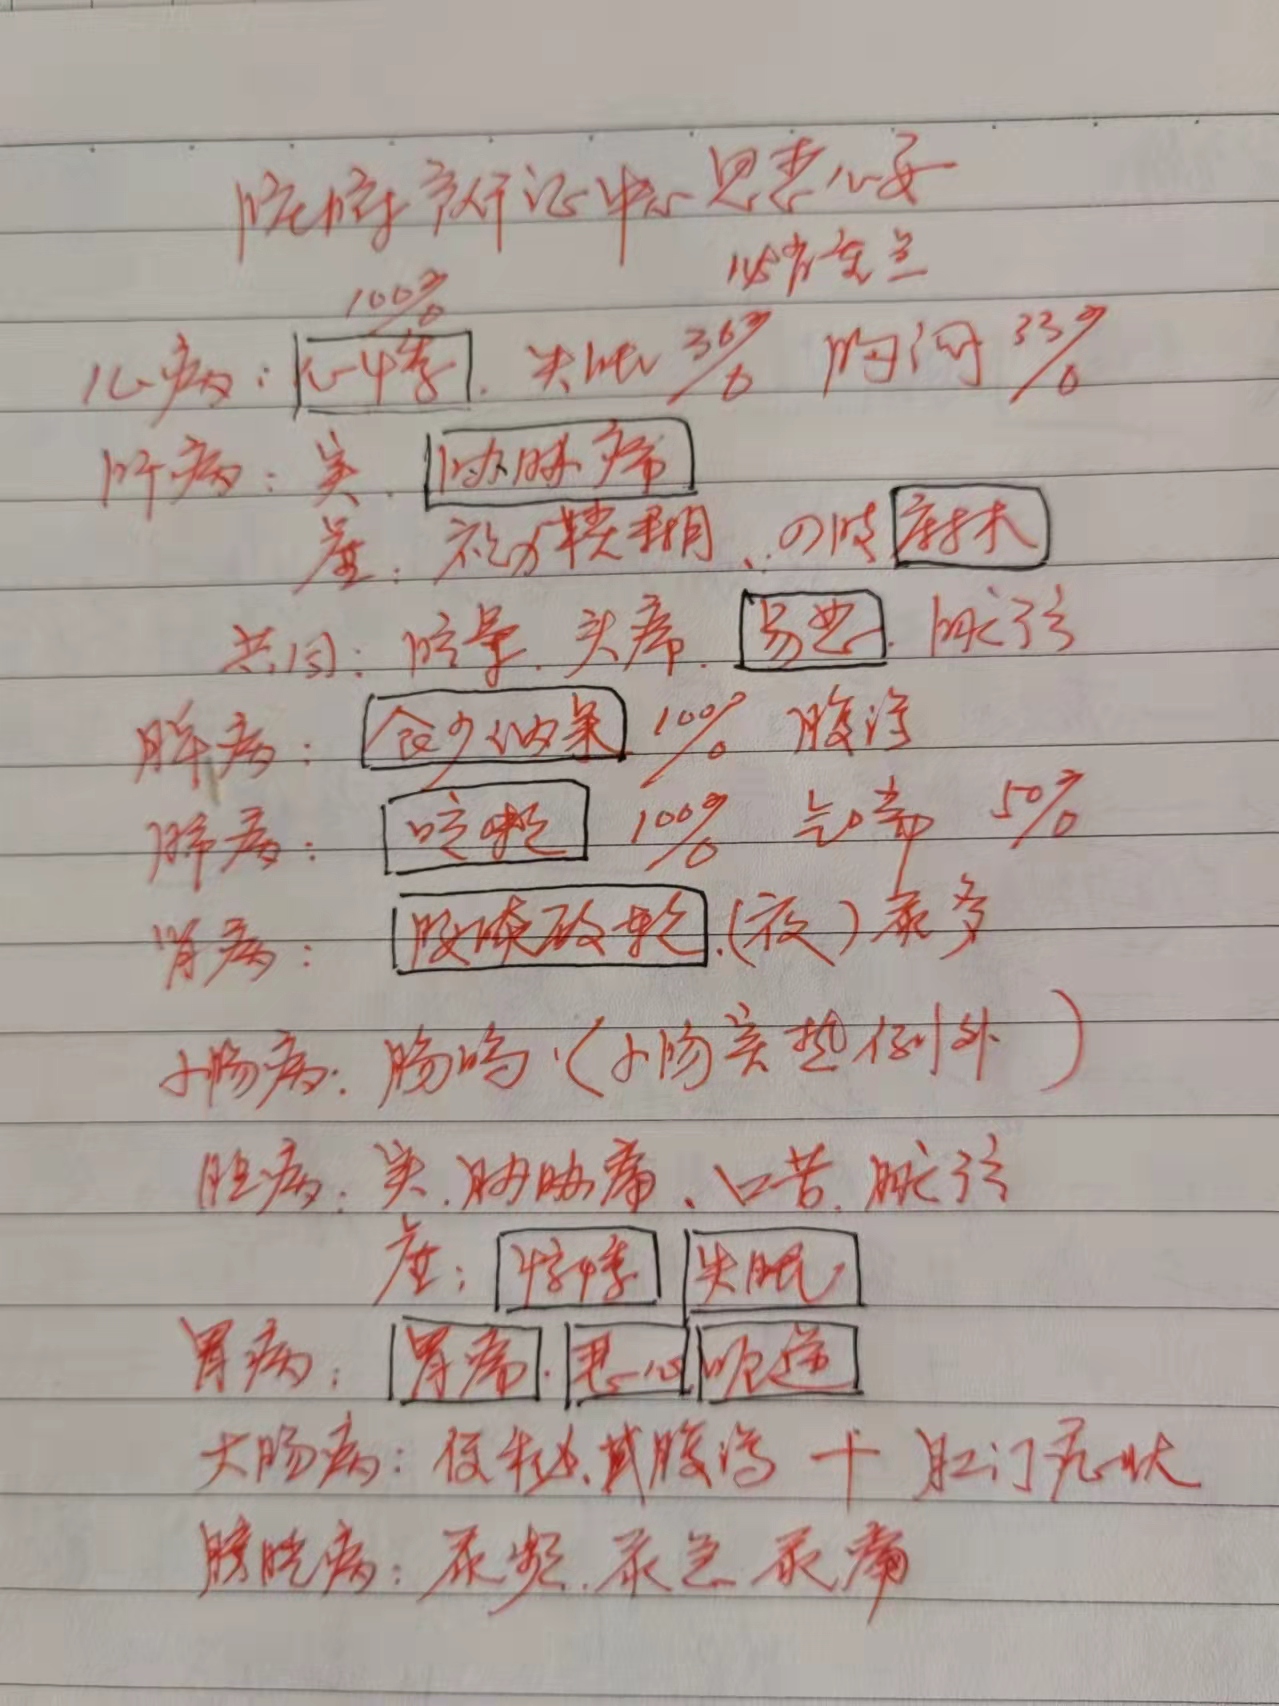 脏腑辨证中心思想必妥
100%
心病：心悸.失眠36% 胸闷33%
肝病：实.胁胀痛
虚：视力模糊、四肢麻木
共同：眩晕.头痛.易怒.脉弦
脾病：食少纳呆 100% 腹泻
肺病：咳嗽 100% 气喘 50%
肾病：腰膝酸软.(夜)尿多
小肠病：肠鸣.(小肠实热例外)
胆病：实.胁肋痛、口苦.脉弦
虚：惊悸 失眠
胃病：胃痛.恶心 呃逆
大肠病：便秘.或腹泻 + 肛门症状
膀胱病：尿频.尿急 尿痛